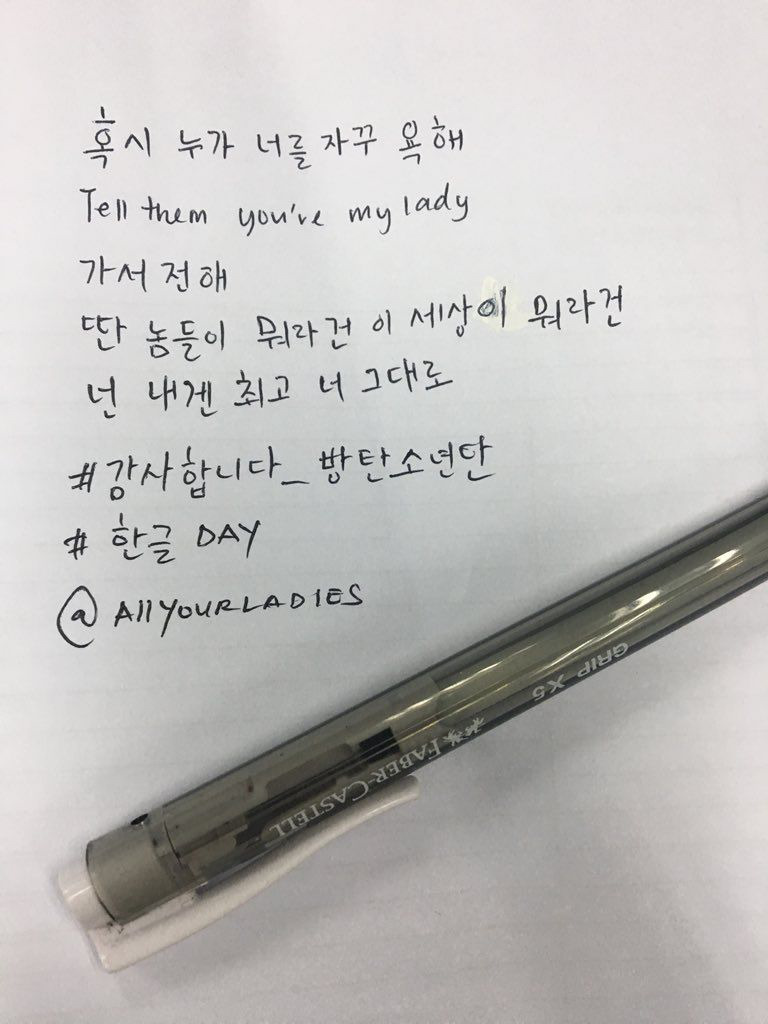 혹시 누가 너를 자꾸 욕해
Tell them you've my lady
가서 전해
딴 놈들이 뭐라건 이 세상이 뭐라건
넌 내겐 최고 너 그대로
#감사합니다_방탄소년단
# 한글 DAY
@AllYOURLADIES
GRIP X5
FABER-CASTELL